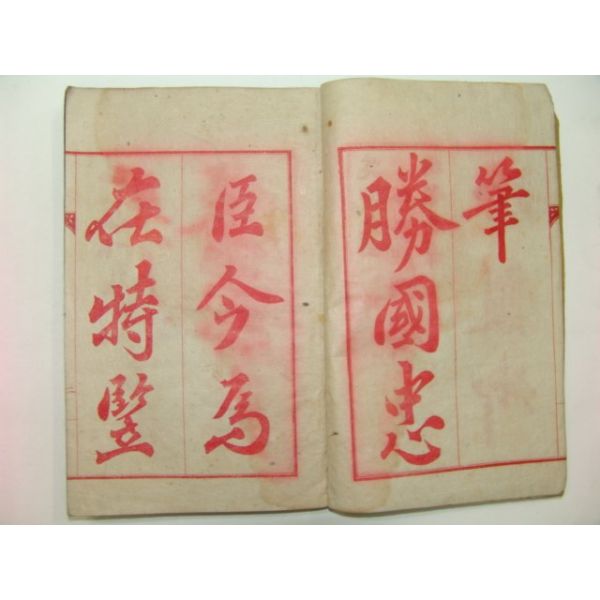 筆
勝國忠
臣今焉
在特竪